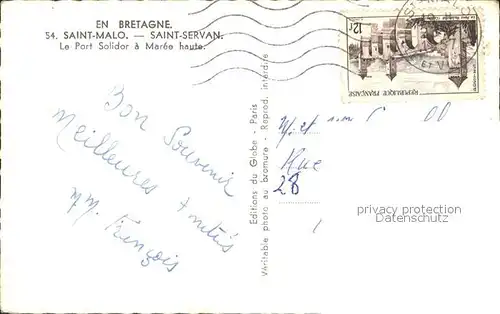 EN BRETAGNE.
54. SAINT-MALO. — SAINT-SERVAN.
Le Port Solidor à Marée haute.
12f
REPUBLIQUE FRANÇAISE
Bon Souvenir
Meilleures Amitiés
MM. François
Editions du Globe - Paris
Véritable photo au bromure - Reprod. interdite
Rue
28
privacy protection
Datenschutz